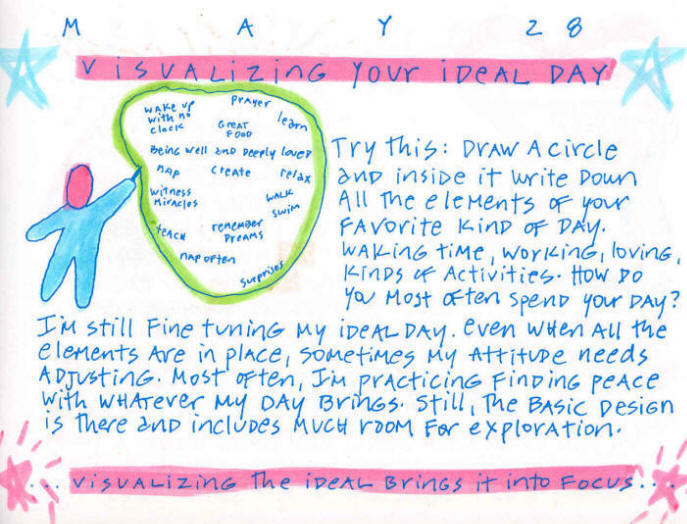 MAY 28
VISUALIZING YOUR IDEAL DAY
WAKE UP PRAYER
WITH NO learn
CLOCK GREAT
FOOD
Being well and Deeply loved
NAP CREATE relax
WITNESS WALK
MIRACLES SWIM
TEACH remember
DREAMS
NAP OFTEN
Surprises
Try this: DRAW A circle
and inside it write Down
All the elements of your
FAVORITE KIND OF DAY.
WAKING TIME, WORKING, loving,
Kinds of Activities. How Do
you Most often spend your DAY?
I'm still Fine tuning My iDEAL DAY. even WHEN All the
elements Are in place, sometimes My Attitude needs
ADJusting. Most often, I'm practicing Finding peace
With WHATever My DAY Brings. Still, The BASIC Design
is there and includes MUCH room For exploration.
... Visualizing the iDEAL Brings it into Focus...